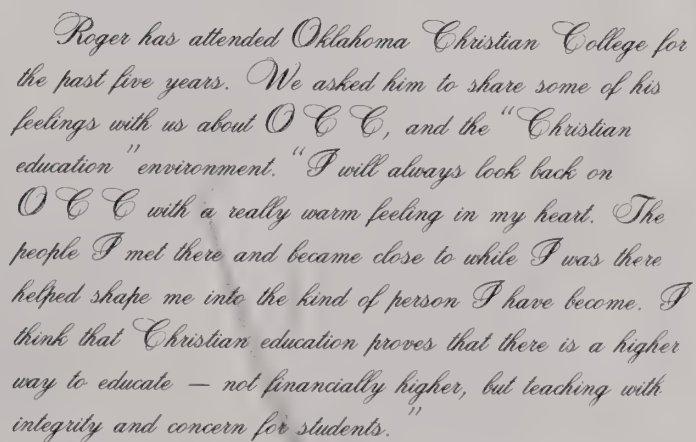 Roger has attended Oklahoma Christian College for
the past five years. We asked him to share some of his
feelings with us about O C C, and the "Christian
education" environment. "I will always look back on
O C C with a really warm feeling in my heart. The
people I met there and became close to while I was there
helped shape me into the kind of person I have become. I
think that Christian education proves that there is a higher
way to educate — not financially higher, but teaching with
integrity and concern for students."